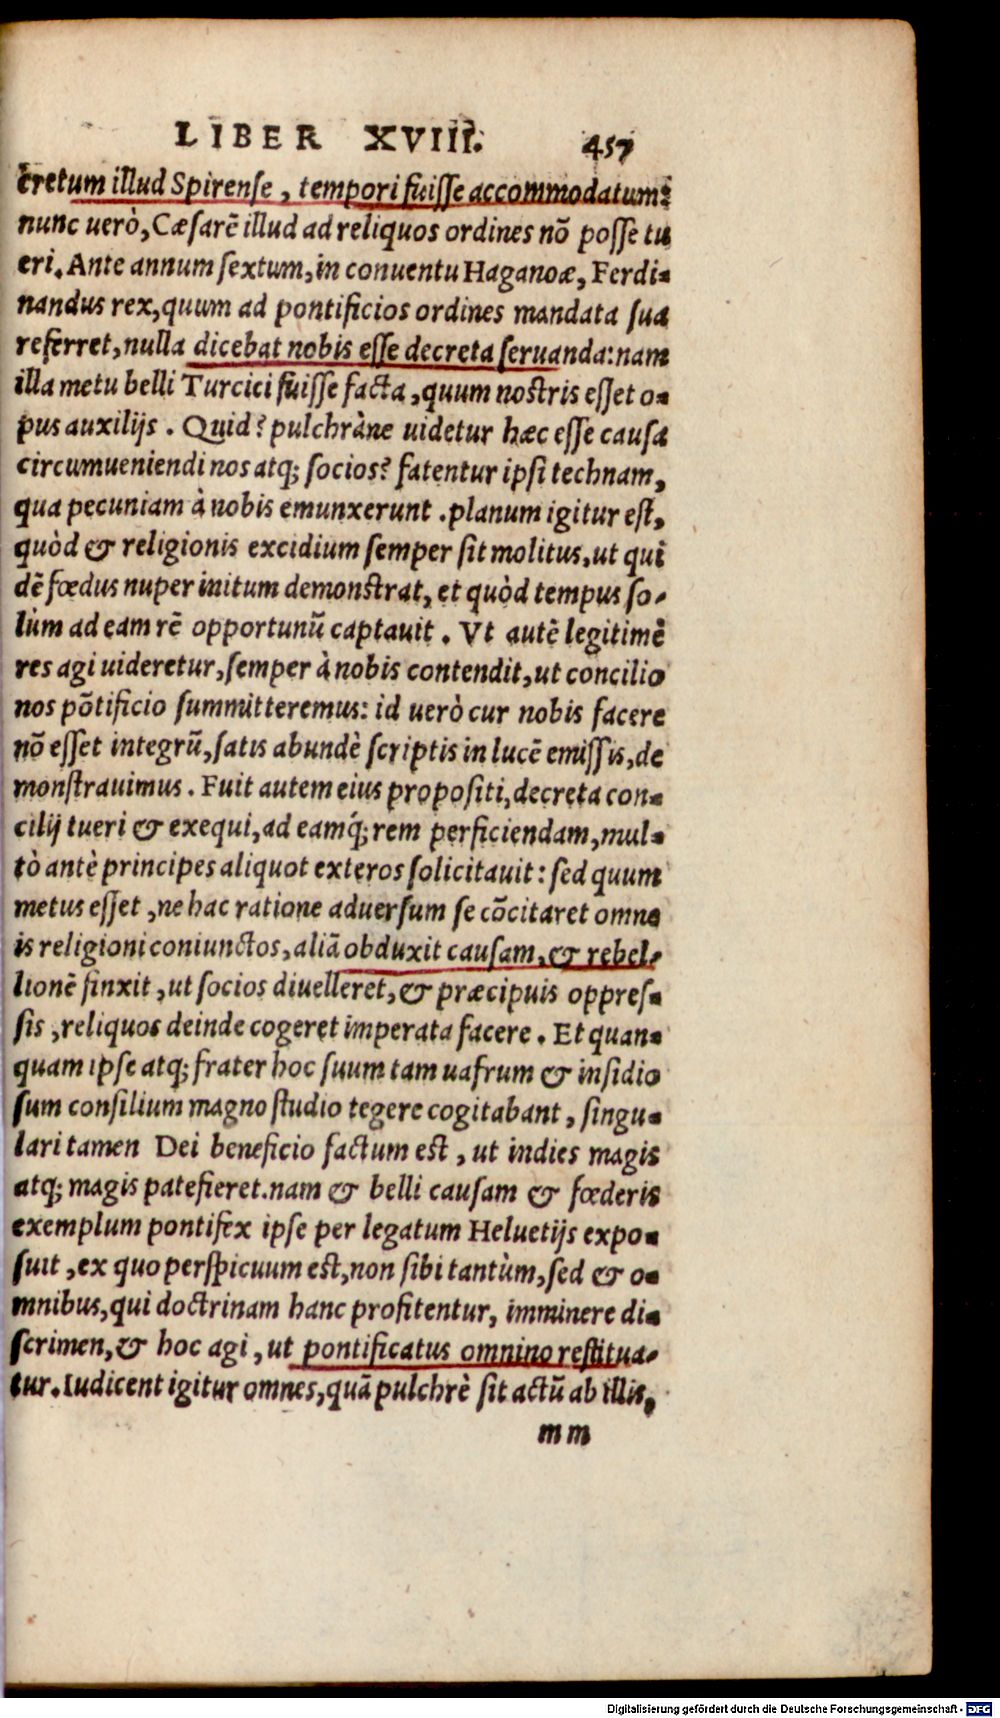 LIBER XVIII. 457
cretum illud Spirense, tempori fuisse accommodatum:
nunc uerò, Cæsarē illud ad reliquos ordines nō posse tu
eri. Ante annum sextum, in conuentu Haganoæ, Ferdi-
nandus rex, quum ad pontificios ordines mandata sua
referret, nulla dicebat nobis esse decreta seruanda: nam
illa metu belli Turcici fuisse facta, quum nostris esset o-
pus auxilijs. Quid? pulchràne uidetur hæc esse causa
circumueniendi nos atq; socios? fatentur ipsi technam,
qua pecuniam à nobis emunxerunt. planum igitur est,
quòd & religionis excidium semper sit molitus, ut qui
dē fœdus nuper initum demonstrat, et quòd tempus so-
lùm ad eam rē opportunū captauit. Vt autē legitimè
res agi uideretur, semper à nobis contendit, ut concilio
nos pōtificio summitteremus: id uerò cur nobis facere
nō esset integrū, satis abundè scriptis in lucē emissis, de
monstrauimus. Fuit autem eius propositi, decreta con-
cilij tueri & exequi, ad eamq́; rem perficiendam, mul-
tò antè principes aliquot exteros solicitauit: sed quum
metus esset, ne hac ratione aduersum se cōcitaret omne
is religioni coniunctos, aliā obduxit causam, & rebel-
lionē finxit, ut socios diuelleret, & præcipuis oppres-
sis, reliquos deinde cogeret imperata facere. Et quan-
quam ipse atq; frater hoc suum tam uafrum & insidio
sum consilium magno studio tegere cogitabant, singu-
lari tamen Dei beneficio factum est, ut indies magis
atq; magis patefieret. nam & belli causam & fœderis
exemplum pontifex ipse per legatum Heluetijs expo-
suit, ex quo perspicuum est, non sibi tantùm, sed & o-
mnibus, qui doctrinam hanc profitentur, imminere di-
scrimen, & hoc agi, ut pontificatus omnino restitua-
tur. Iudicent igitur omnes, quā pulchrè sit actū ab illis,
mm
Digitalisierung gefördert durch die Deutsche Forschungsgemeinschaft - DFG